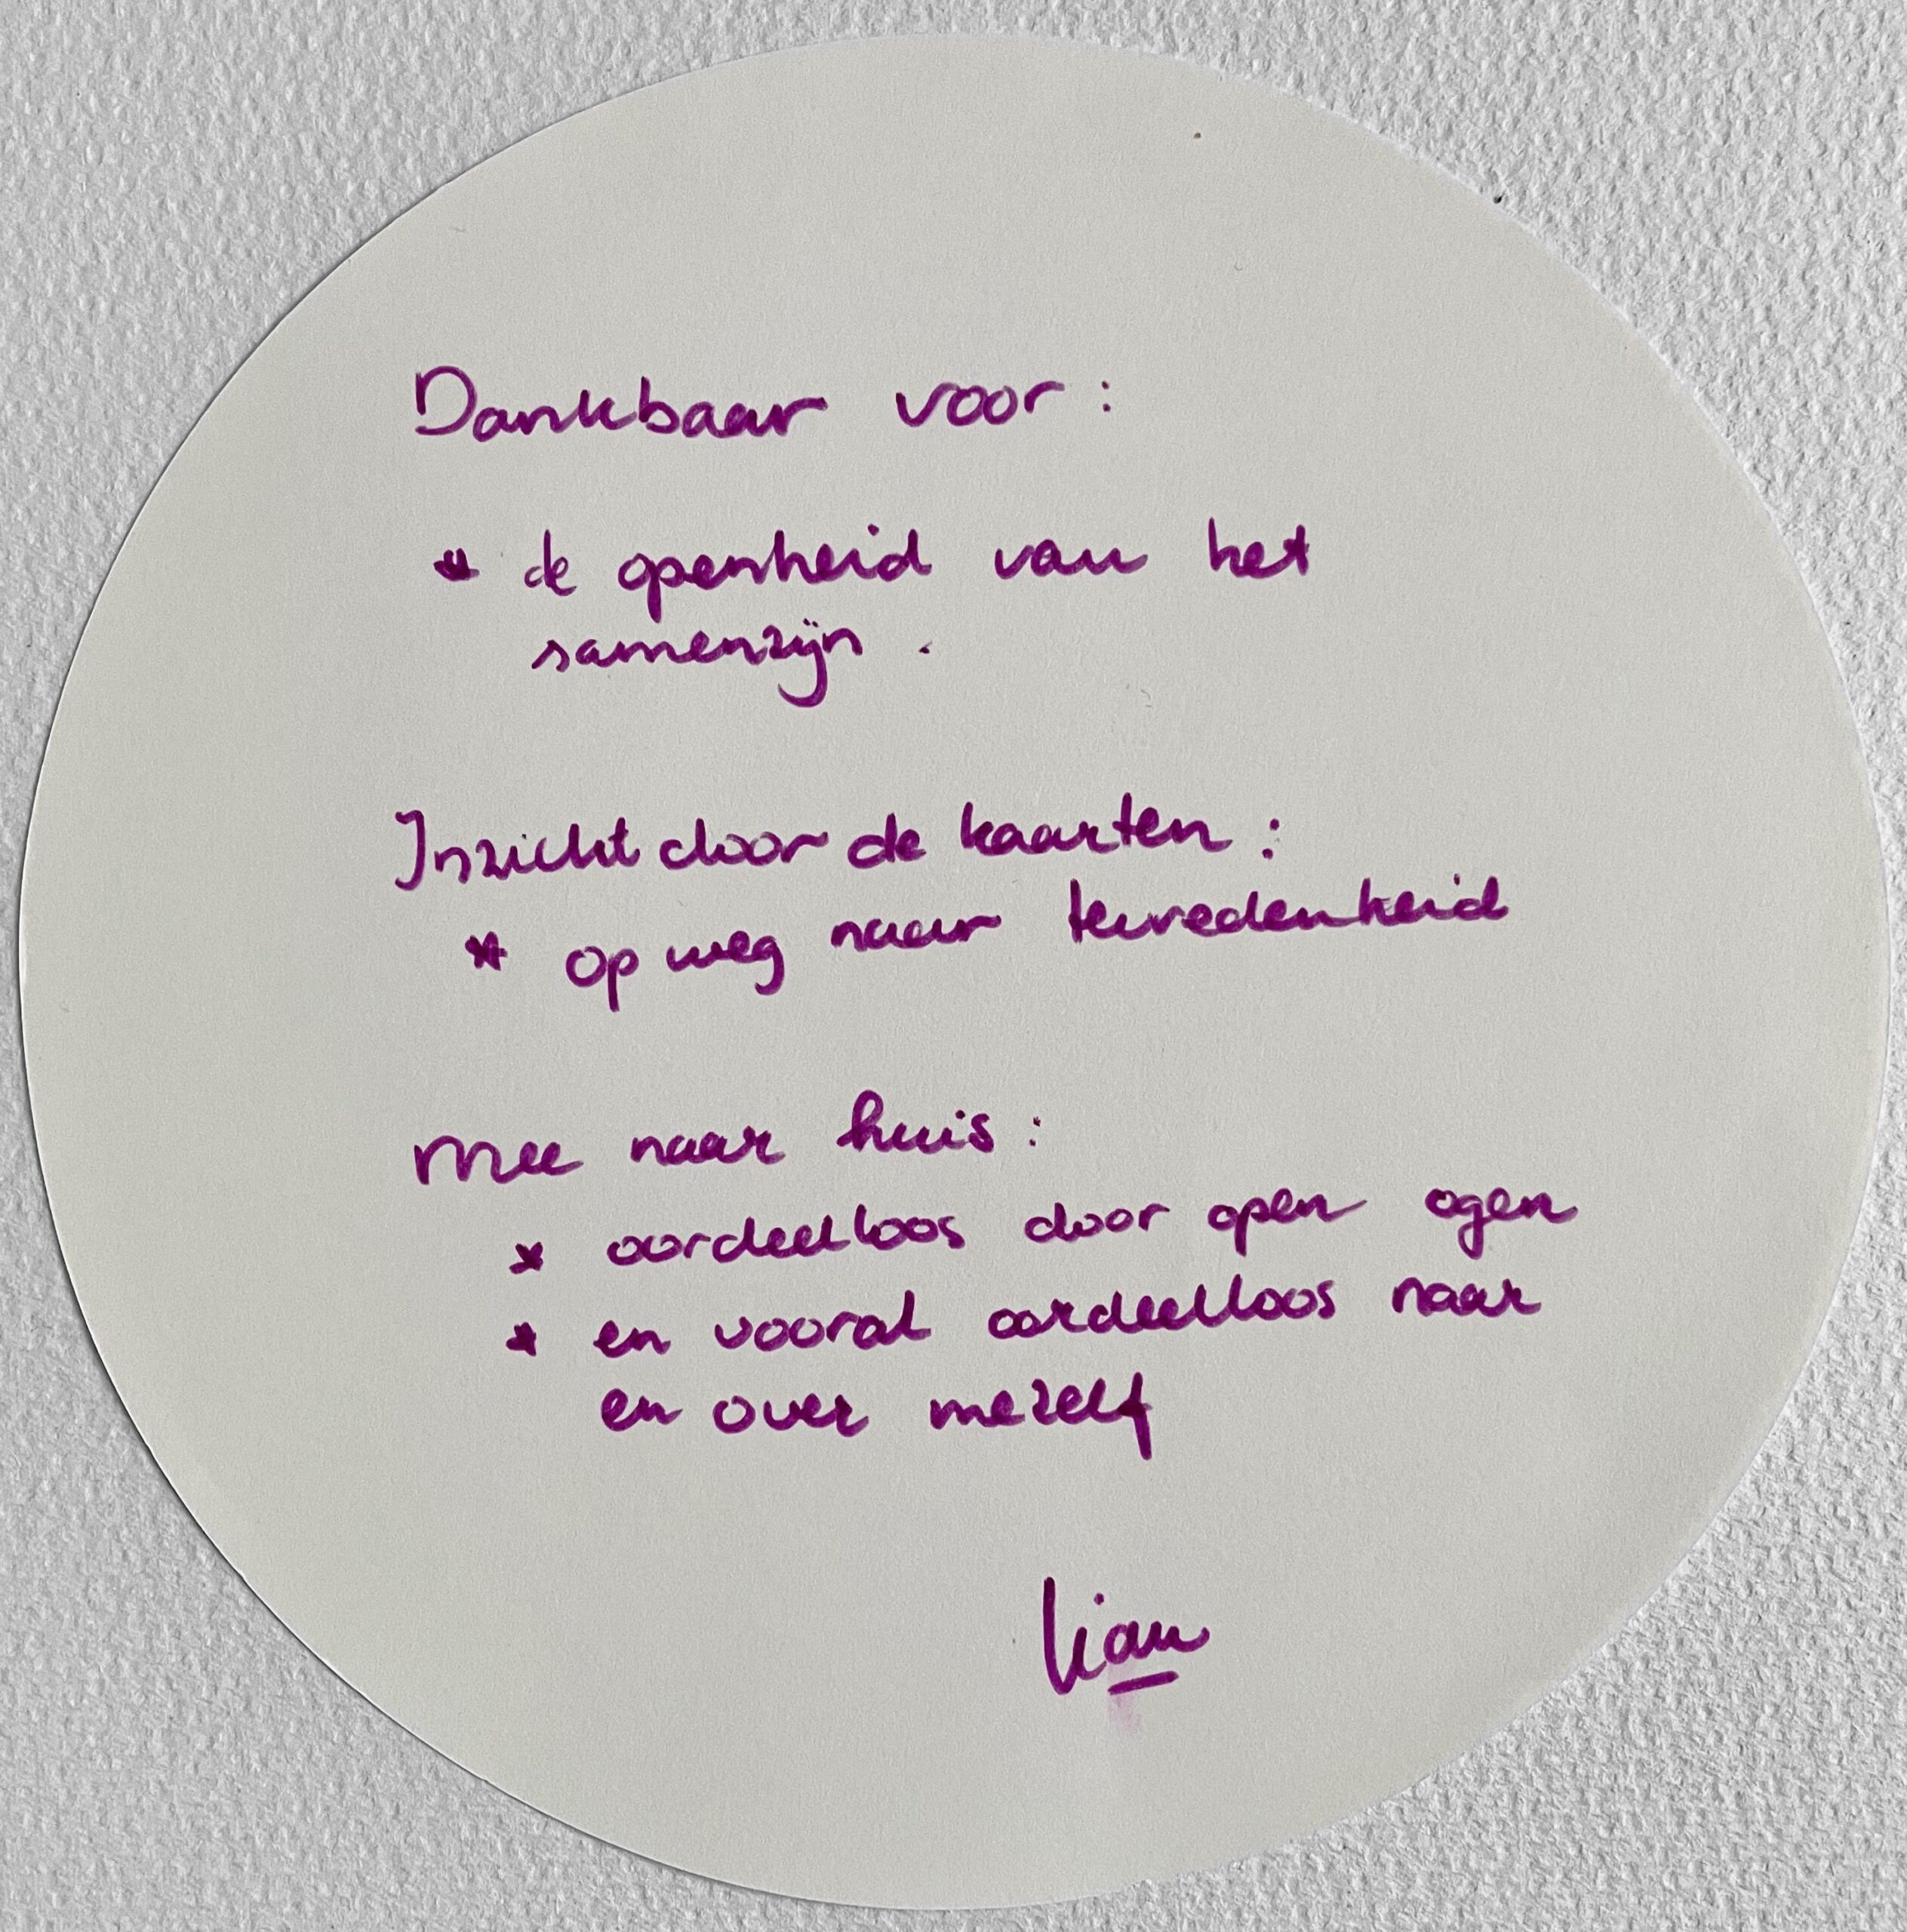 Dankbaar voor :
* de openheid van het
samenzijn .
Inzicht door de kaarten :
* op weg naar tevredenheid
Mee naar huis :
* oordeelloos door open ogen
* en vooral oordeelloos naar
en over mezelf
Lian